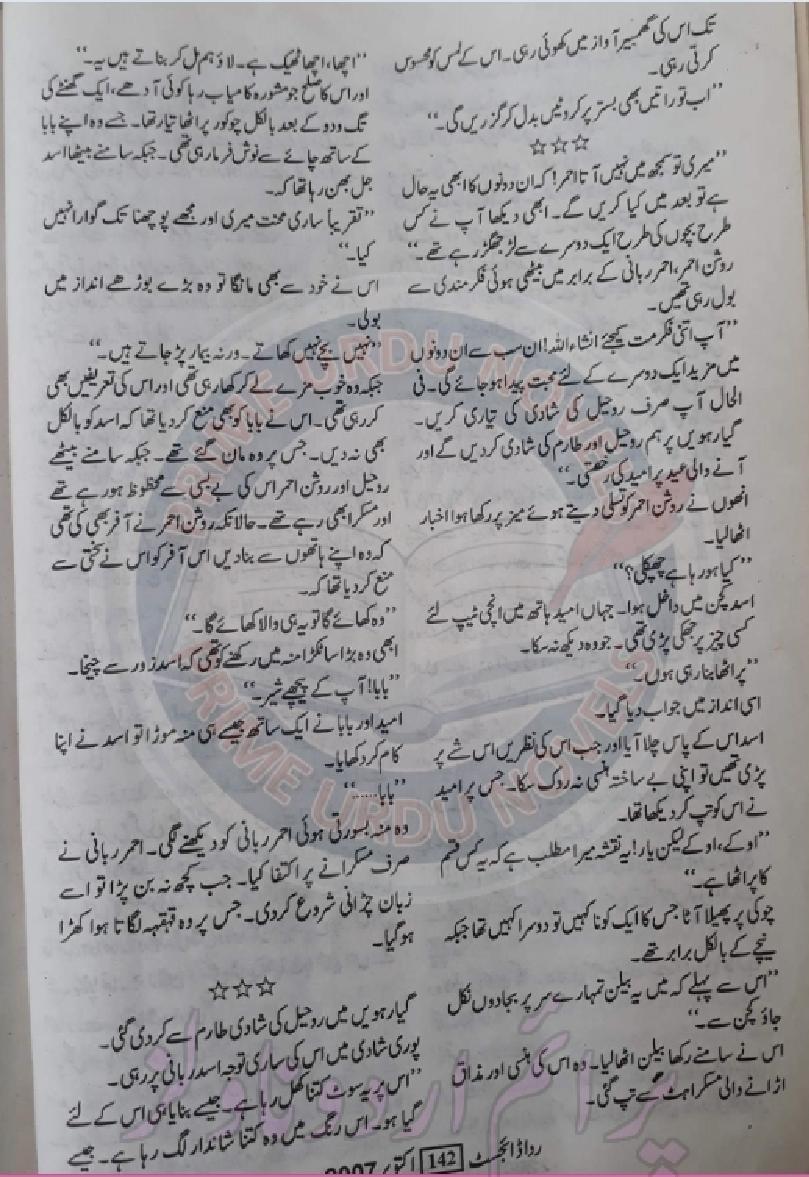 تک اس کی گھمبیر آواز میں کھوئی رہی۔ اس کے لمس کو محسوس
کرتی رہی۔
”اب تو راتیں بھی بستر پر کروٹیں بدل کر گزریں گی۔“
☆☆☆
”میری تو سمجھ میں نہیں آتا احمر! کہ ان دونوں کا ابھی یہ حال
ہے تو بعد میں کیا کریں گے۔ ابھی دیکھا آپ نے کس
طرح بچوں کی طرح ایک دوسرے سے لڑ جھگڑ رہے تھے۔“
روشن احمر، احمر ربانی کے برابر میں بیٹھی ہوئی فکرمندی سے
بول رہی تھیں۔
”آپ اتنی فکر مت کیجئے انشاء اللہ! ان سب سے ان دونوں
میں مزید ایک دوسرے کے لئے محبت پیدا ہو جائے گی۔ فی
الحال آپ صرف روحیل کی شادی کی تیاری کریں۔
گیارہویں پر ہم روحیل اور طارم کی شادی کردیں گے اور
آنے والی عید پر امید کی رخصتی۔“
انھوں نے روشن احمر کو تسلی دیتے ہوئے میز پر رکھا ہوا اخبار
اٹھا لیا۔
”کیا ہو رہا ہے چھپکلی؟“
اسد کچن میں داخل ہوا۔ جہاں امید ہاتھ میں انچی ٹیپ لئے
کسی چیز پر جھکی پڑی تھی۔ جو وہ دیکھ نہ سکا۔
”پراٹھا بنا رہی ہوں۔“
اسی انداز میں جواب دیا گیا۔
اسد اس کے پاس چلا آیا اور جب اس کی نظریں اس شے پر
پڑی تھیں تو اپنی بے ساختہ ہنسی نہ روک سکا۔ جس پر امید
نے اس کو تپ کر دیکھا تھا۔
”اوکے، اوکے لیکن یار! یہ نقشہ میرا مطلب ہے کہ یہ کس قسم
کا پراٹھا ہے۔“
چوکی پر پھیلا آٹا جس کا ایک کونا کہیں تو دوسرا کہیں تھا جبکہ
نیچے کے بالکل برابر تھے۔
”اس سے پہلے کہ میں یہ بیلن تمہارے سر پر بجا دوں نکل
جاؤ کچن سے۔“
اس نے سامنے رکھا بیلن اٹھا لیا۔ وہ اس کی ہنسی اور مذاق
اڑانے والی مسکراہٹ سے تپ گئی۔
”اچھا، اچھا ٹھیک ہے۔ لاؤ ہم مل کر بناتے ہیں یہ۔“
اور اس کا صلح جو مشورہ کامیاب رہا کوئی آدھے، ایک گھنٹے کی
تگ و دو کے بعد بالکل چوکور پراٹھا تیار تھا۔ جسے وہ اپنے بابا
کے ساتھ چائے سے نوش فرما رہی تھی۔ جبکہ سامنے بیٹھا اسد
جل بھن رہا تھا کہ۔
”تقریباً ساری محنت میری اور مجھے پوچھنا تک گوارا نہیں
کیا۔“
اس نے خود سے بھی مانگا تو وہ بڑے بوڑھے انداز میں
بولی۔
”نہیں بچے نہیں کھاتے۔ ورنہ بیمار پڑ جاتے ہیں۔“
جبکہ وہ خوب مزے لے کر کھا رہی تھی اور اس کی تعریفیں بھی
کر رہی تھی۔ اس نے بابا کو بھی منع کر دیا تھا کہ اسد کو بالکل
بھی نہ دیں۔ جس پر وہ مان گئے تھے۔ جبکہ سامنے بیٹھے
روحیل اور روشن احمر اس کی بے بسی سے محظوظ ہو رہے تھے
اور مسکرا بھی رہے تھے۔ حالانکہ روشن احمر نے آفر بھی کی تھی
کہ وہ اپنے ہاتھوں سے بنا دیں اس آفر کو اس نے سختی سے
منع کر دیا تھا کہ۔
”وہ کھائے گا تو یہ ہی والا کھائے گا۔“
ابھی وہ بڑا سا ٹکڑا منہ میں رکھنے کو تھی کہ اسد زور سے چیخا۔
”بابا! آپ کے پیچھے شیر۔“
امید اور بابا نے ایک ساتھ جیسے ہی منہ موڑا تو اسد نے اپنا
کام کر دکھایا۔
”بابا......“
وہ منہ بسورتی ہوئی احمر ربانی کو دیکھنے لگی۔ احمر ربانی نے
صرف مسکرانے پر اکتفا کیا۔ جب کچھ نہ بن پڑا تو اسے
زبان چڑانی شروع کر دی۔ جس پر وہ قہقہہ لگاتا ہوا کھڑا
ہو گیا۔
☆☆☆
گیارہویں میں روحیل کی شادی طارم سے کر دی گئی۔
پوری شادی میں اس کی ساری توجہ اسد ربانی پر رہی۔
”اس پر یہ سوٹ کتنا کھل رہا ہے۔ جیسے بنایا ہی اس کے لئے
گیا ہو۔ اس رنگ میں وہ کتنا شاندار لگ رہا ہے۔ جیسے
ردا ڈائجسٹ 142 اکتوبر 2007
PRIME URDU NOVELS
PRIME URDU NOVELS
پرائم اردو ناولز